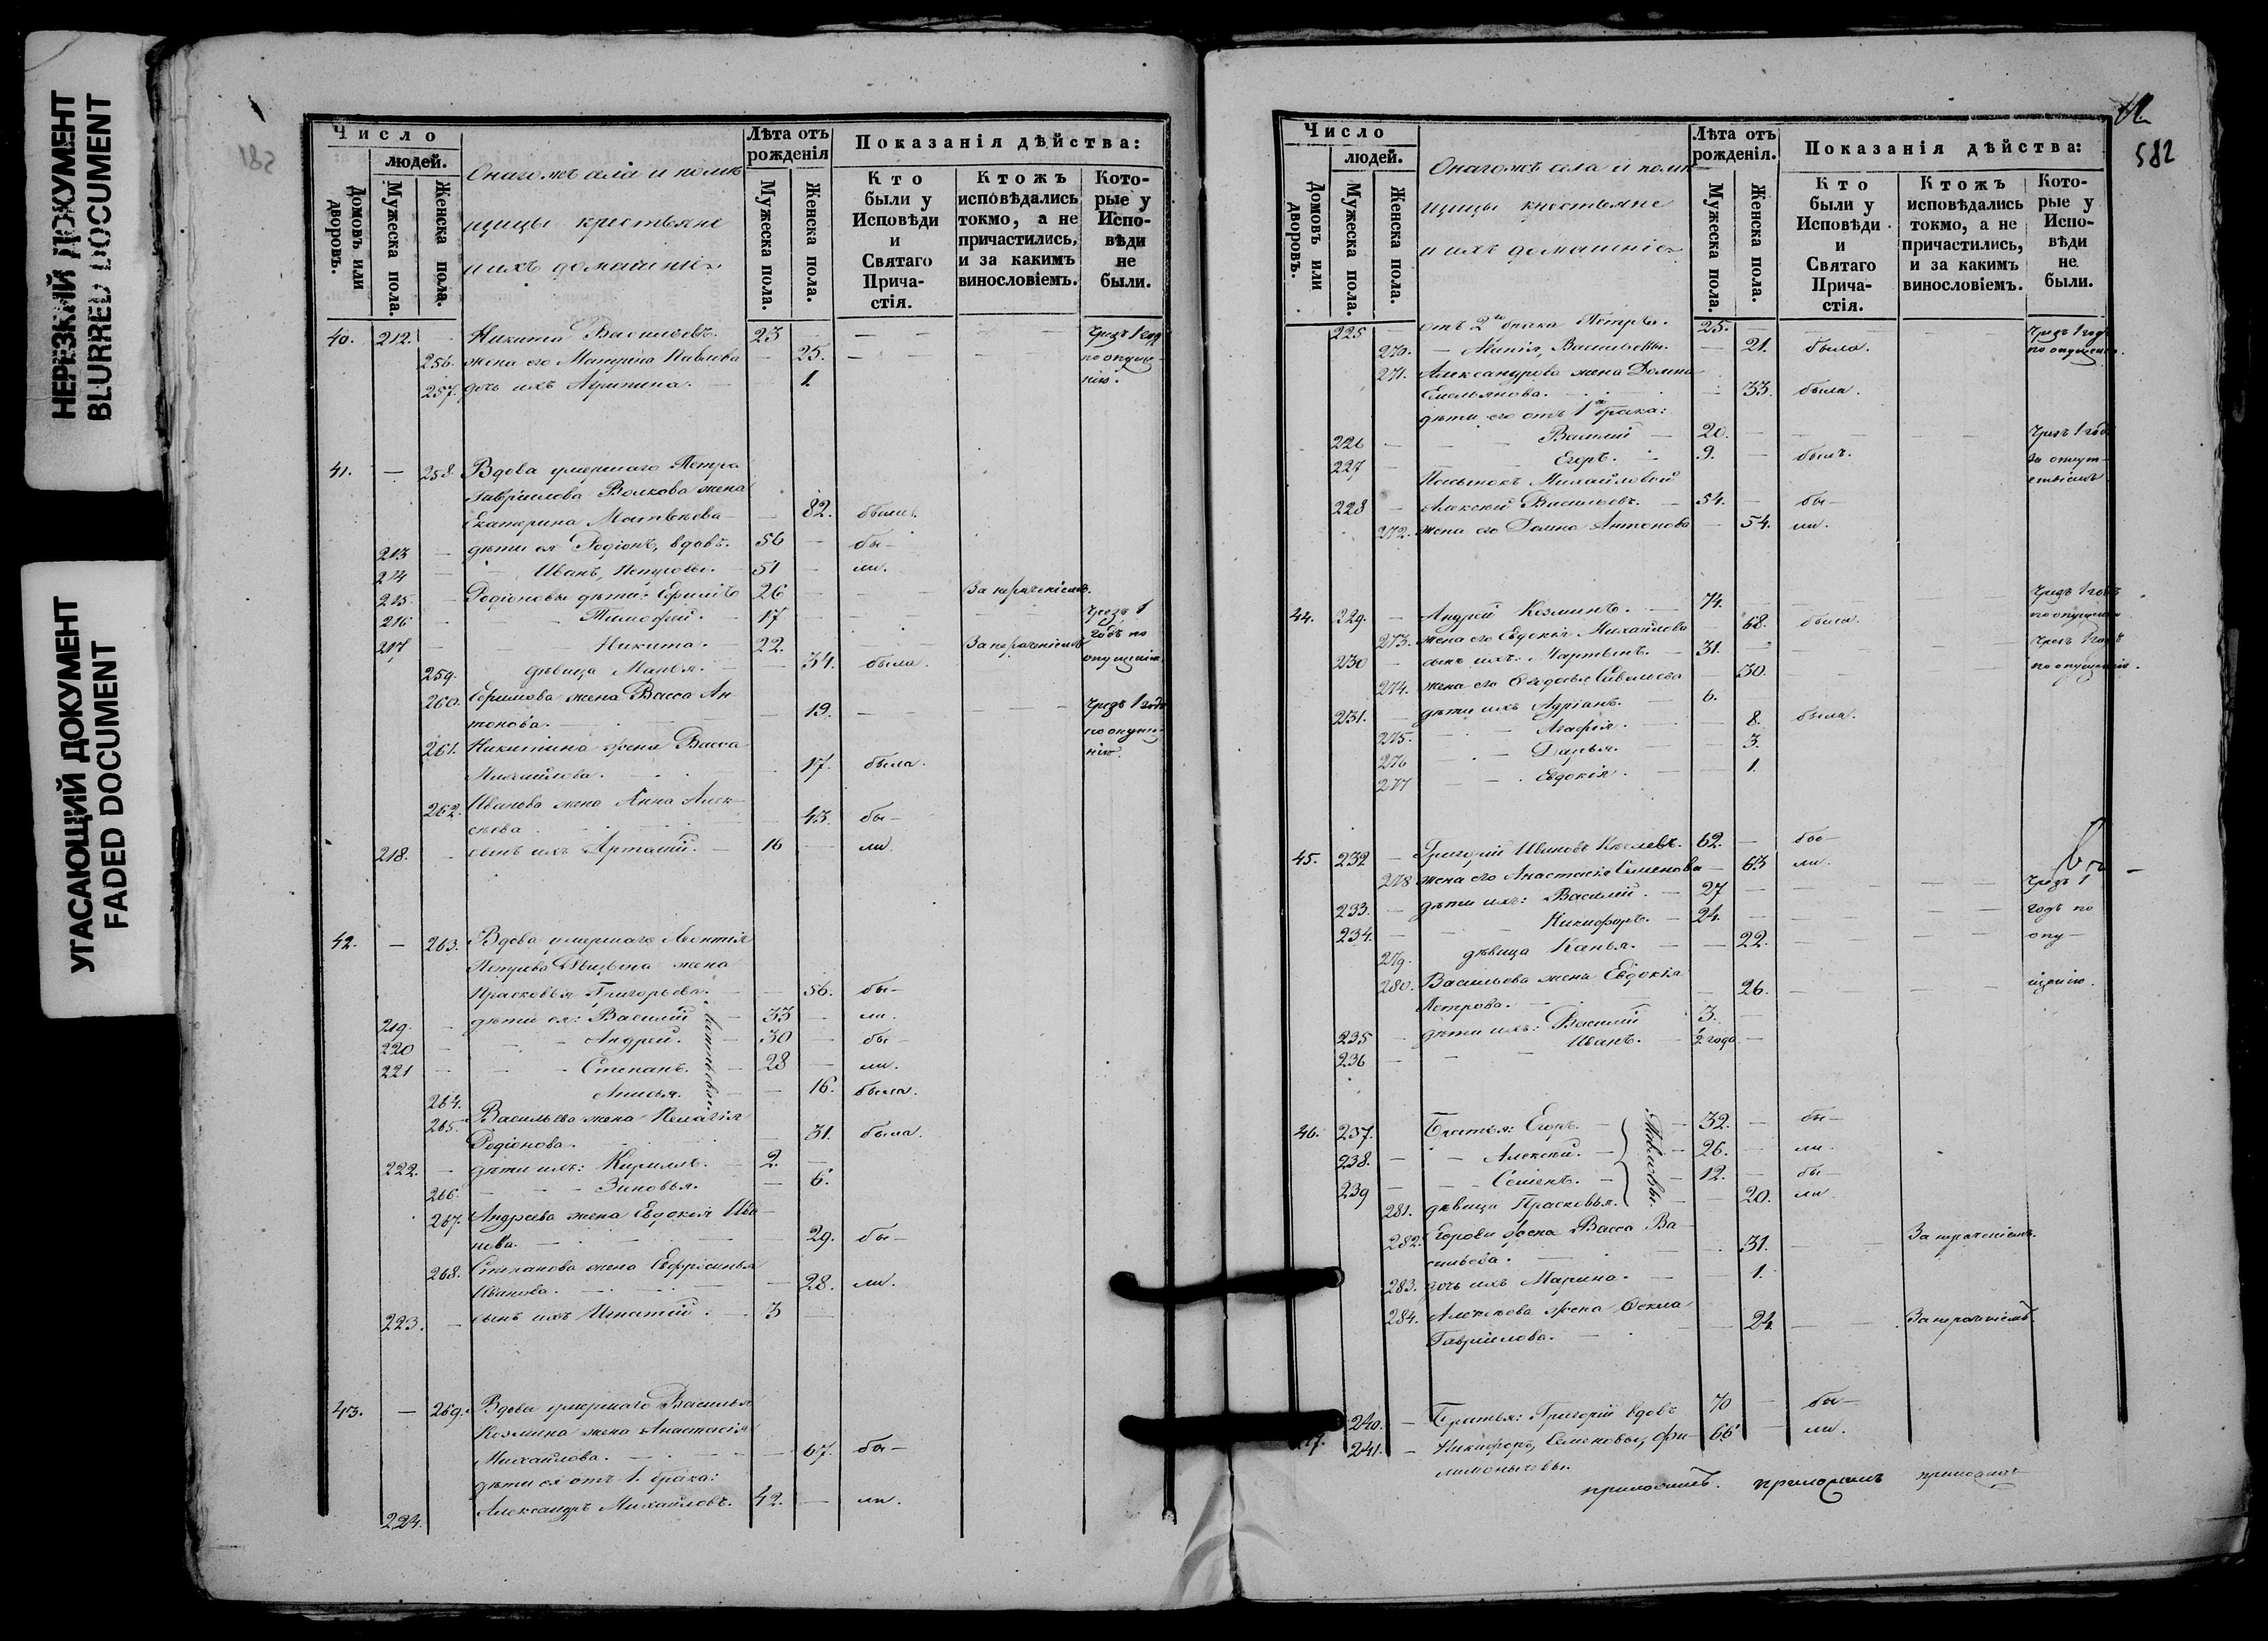 НЕРЕЗКИЙ ДОКУМЕНТ
BLURRED DOCUMENT
УГАСАЮЩИЙ ДОКУМЕНТ
FADED DOCUMENT
Число
людей.
Домовъ или дворовъ.
Мужеска пола.
Женска пола.
Онагожъ села и помѣ
щицы крестьяне
и ихъ домашніе
Лѣта отъ рожденія
Мужеска пола.
Женска пола.
Показанія дѣйства:
Кто были у Исповѣди и Святаго Прича-стія.
Ктожъ исповѣдались токмо, а не причастились, и за какимъ винословіемъ.
Кото-рые у Испо-вѣди не были.
40. 212. Никита Васильевъ. 23 — — — Чрезъ 1 годъ
256. жена его Матрона Павлова — 25. — — по опуще-
257. дочь ихъ Агрипина. 1. нію.
41. — 258. Вдова умершаго Петра
Гавриилова Волкова жена
Екатерина Матвѣева — 82. была.
213 — дѣти ея Родіонъ, вдовъ. 56 — бы-
214 — Иванъ, Петровы. — 51 — ли.
215. — Родіоновы дѣти: Ефимъ 26 — — За нераченіемъ.
216 — Тимофей. — 17 — — Чрезъ 1
217 — Никита. — 22. — — За нераченіемъ годъ по
259. дѣвица Марья. — 34. была. опущенію
260. Ефимова жена Васса Ан
тонова. — 19. — — Чрезъ 1 годъ
261. Никитина жена Васса по опуще-
Михайлова. — 17. была. нію.
262. Иванова жена Анна Алек-
сѣева — 43. бы-
218. — сынъ ихъ Артамій. — 16 — ли
42. — 263. Вдова умершаго Леонтія
Петрова жена
Прасковья Григорьева. — 56. бы-
219. — дѣти ея: Василій — 33 — ли.
220 — Андрей. — 30 — бы-
221 — Степанъ. — 28 — ли.
264. Анисья. — 16. была.
Леонтьевы.
265. Васильева жена Пелагія
Родіонова. — 31. была.
222. — дѣти ихъ: Кирилъ. — 2. —
266. — Зиновья. — 6.
267. Андреева жена Евдокія Ива
нова. — 29. бы-
268. Степанова жена Евфросинья
Иванова. — 28. ли.
223. — сынъ ихъ Игнатій. 3 —
43. — 269. Вдова умершаго Василья
Козмина жена Анастасія
Михайлова. — 67. бы-
дѣти ея отъ 1. брака:
224. Александръ Михайловъ. 42. — ли.
582
Число
людей.
Домовъ или дворовъ.
Мужеска пола.
Женска пола.
Онагожъ села и помѣ-
щицы крестьяне
и ихъ домашніе
Лѣта отъ рожденія.
Мужеска пола.
Женска пола.
Показанія дѣйства:
Кто были у Исповѣди и Святаго Прича-стія.
Ктожъ исповѣдались токмо, а не причастились, и за какимъ винословіемъ.
Кото-рые у Испо-вѣди не были.
225 — отъ 2го брака Петръ. 25. — — — Чрезъ 1 годъ
270. — Васильевы. — 21. была. по опущенію.
271. Александрова жена Домна
Емельянова. — 33. была.
дѣти его отъ 1го брака:
226 — Василій — 20. — — — Чрезъ 1 годъ
227 — Егоръ. — 9. — былъ. За отсут-
Пасынокъ Михайловой ствіемъ
228 — Алексѣй Васильевъ. — 54. — бы-
272. жена его Домна Антонова — 54. ли.
44. 229. — Андрей Козминъ. — 74. — — — Чрезъ 1 годъ
273. жена его Евдокія Михайлова — 68. была. по опущенію
230 — сынъ ихъ: Мартынъ. — 31. — — — Чрезъ 1 годъ
274. жена его Ѳедосья Савельева — 30. — — по опущенію.
231. — дѣти ихъ Адріанъ. — 6.
275. — Агафія. — 8. была.
276 — Дарья. — 3.
277 — Евдокія. — 1.
45. 232 — Григорій Ивановъ 62. — бы-
278 жена его Анастасія Семенова — 63 ли.
233. — дѣти ихъ: Василій. — 27 — — — Чрезъ 1
234. — Никифоръ. — 24. — — — годъ по
279. дѣвица — 22. — — — опу-
280. Васильева жена Евдокія
Петрова. — 26. — — — щенію.
235 — дѣти ихъ: Василій 3. —
236 — Иванъ. — ½ года —
46. 237. Братья: Егоръ. — 32. — бы-
238. — Алексѣй. — 26. — ли.
239 — Семенъ. — 12. — бы-
281. дѣвица Прасковья. — 20. ли.
Павловы.
282. Егорова жена Васса Ва-
сильева. — 31. — — За нераченіемъ.
283. дочь ихъ Марина. — 1.
284. Алексѣева жена Ѳекла
Гавриилова. — 24 — — За нераченіемъ.
240. — Братья: Григорій вдовъ 70 — бы-
47. 241. — Никифоръ, Семеновы, Фи- 66 — ли.
лимоновы.